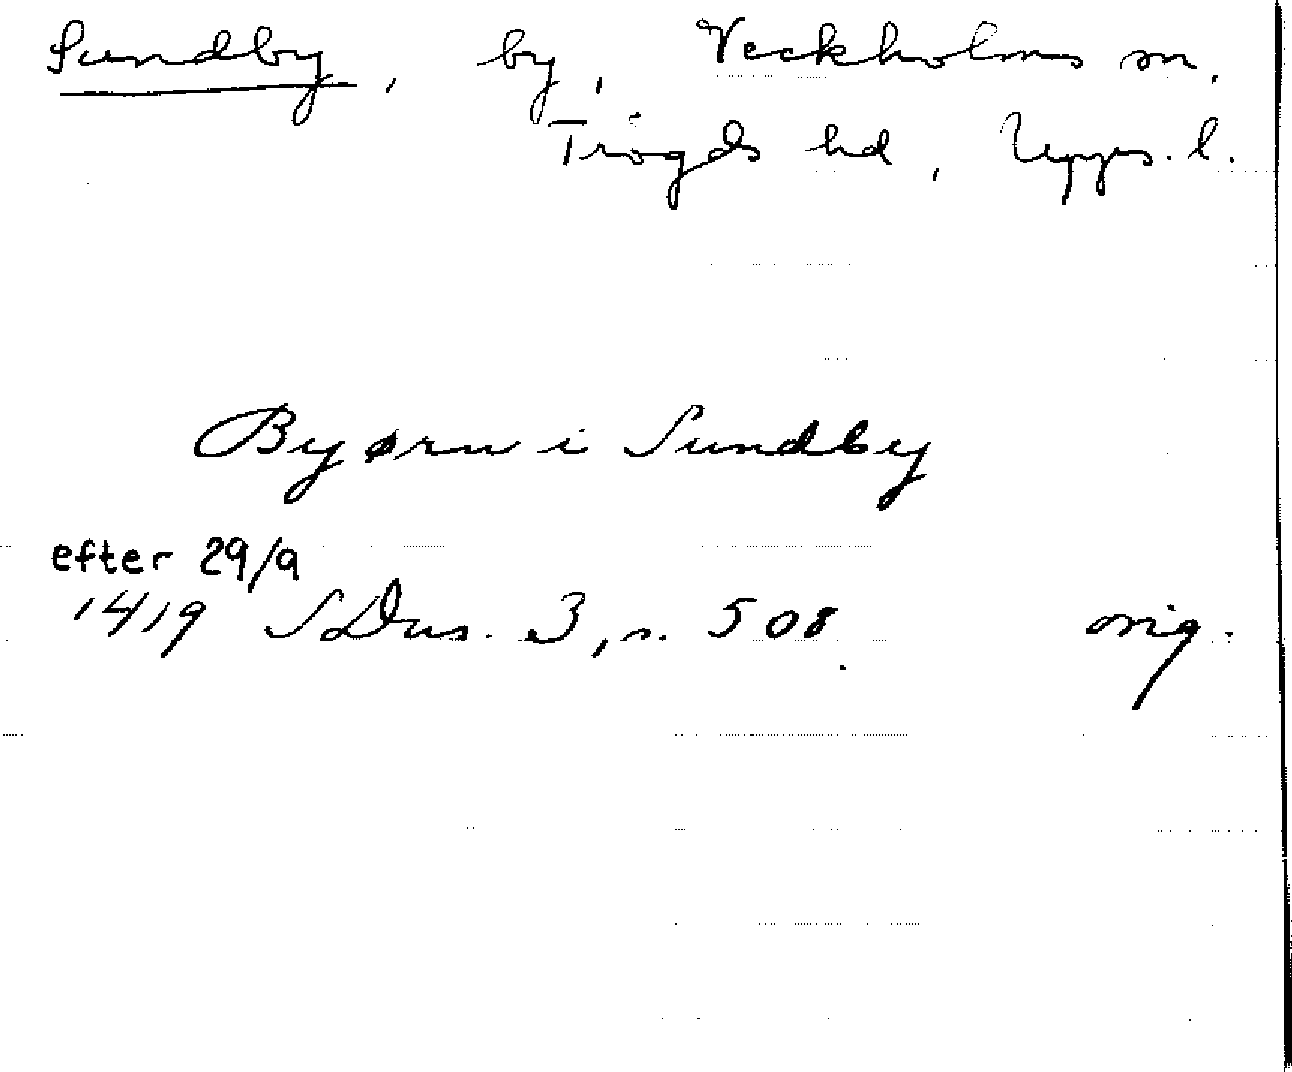 Sundby, by, Veckholms sn,
Trögds hd, Upps. l.
Byørn i Sundby
efter 29/9
1419 SDns. 3, s. 508. orig.